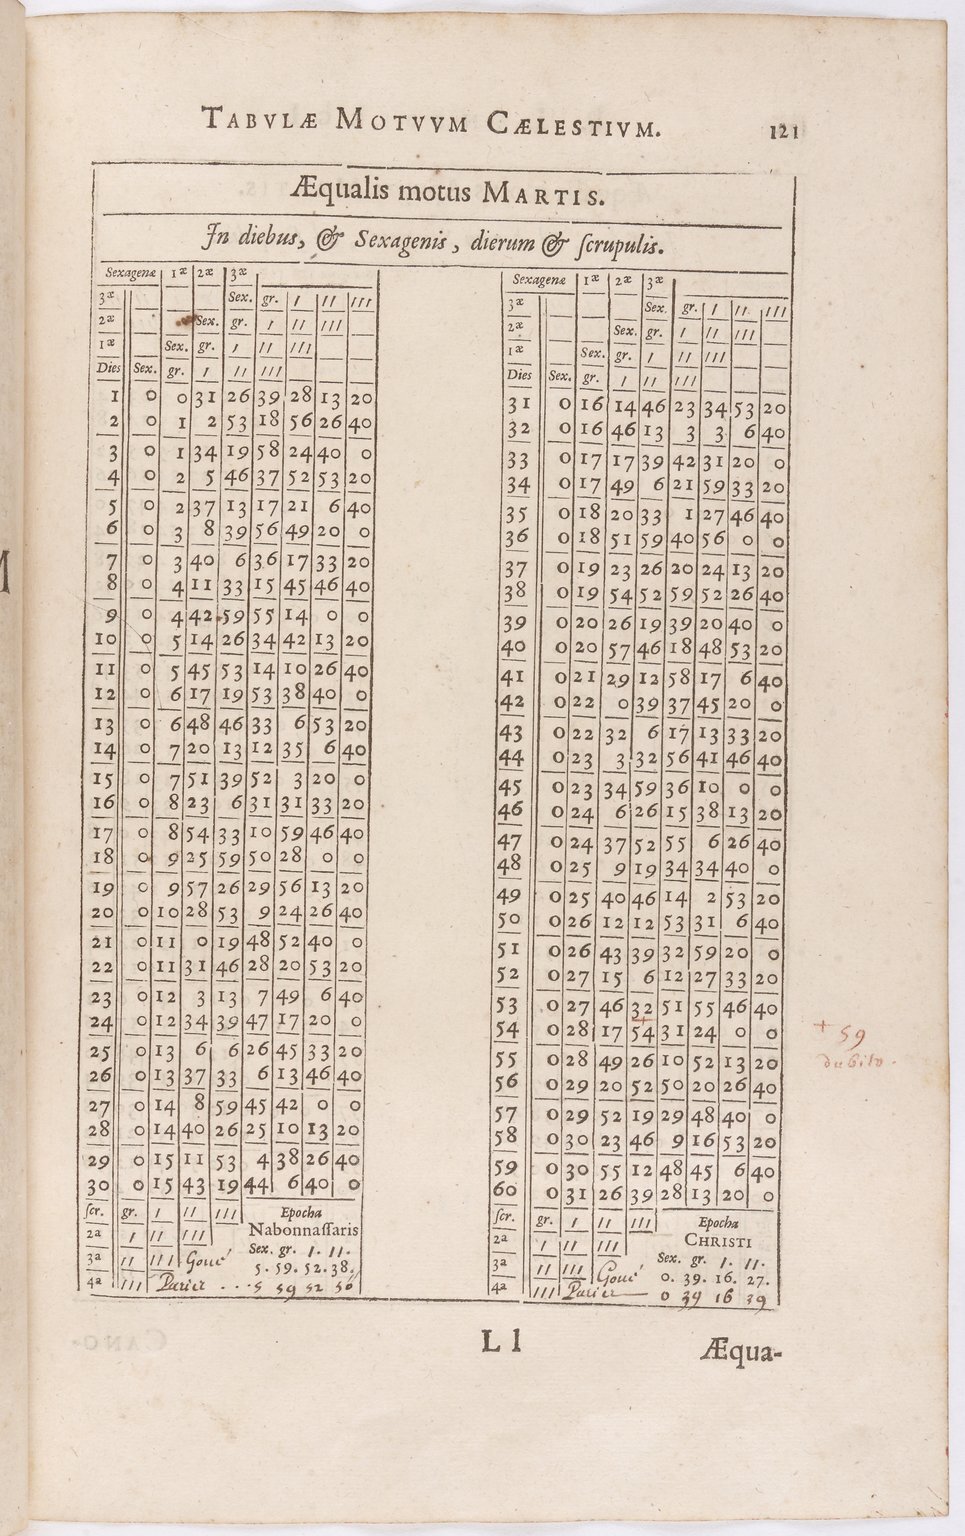 TABVLÆ MOTVVM CÆLESTIVM. 121
Æqualis motus MARTIS.
In diebus, & Sexagenis, dierum & scrupulis.
Sexagenæ 1æ 2æ 3æ
3æ Sex. gr. I II III
2æ Sex. gr. I II III
1æ Sex. gr. I II III
Dies Sex. gr. I II III
1 0 0 31 26 39 28 13 20
2 0 1 2 53 18 56 26 40
3 0 1 34 19 58 24 40 0
4 0 2 5 46 37 52 53 20
5 0 2 37 13 17 21 6 40
6 0 3 8 39 56 49 20 0
7 0 3 40 6 36 17 33 20
8 0 4 11 33 15 45 46 40
9 0 4 42 59 55 14 0 0
10 0 5 14 26 34 42 13 20
11 0 5 45 53 14 10 26 40
12 0 6 17 19 53 38 40 0
13 0 6 48 46 33 6 53 20
14 0 7 20 13 12 35 6 40
15 0 7 51 39 52 3 20 0
16 0 8 23 6 31 31 33 20
17 0 8 54 33 10 59 46 40
18 0 9 25 59 50 28 0 0
19 0 9 57 26 29 56 13 20
20 0 10 28 53 9 24 26 40
21 0 11 0 19 48 52 40 0
22 0 11 31 46 28 20 53 20
23 0 12 3 13 7 49 6 40
24 0 12 34 39 47 17 20 0
25 0 13 6 6 26 45 33 20
26 0 13 37 33 6 13 46 40
27 0 14 8 59 45 42 0 0
28 0 14 40 26 25 10 13 20
29 0 15 11 53 4 38 26 40
30 0 15 43 19 44 6 40 0
scr. gr. I II III Epocha
2a I II III Nabonnassaris
3a II III Goué Sex. gr. I. II.
5. 59. 52. 38.
4a III Purier . . . 5 59 52 50
Sexagenæ 1æ 2æ 3æ
3æ Sex. gr. I II III
2æ Sex. gr. I II III
1æ Sex. gr. I II III
Dies Sex. gr. I II III
31 0 16 14 46 23 34 53 20
32 0 16 46 13 3 3 6 40
33 0 17 17 39 42 31 20 0
34 0 17 49 6 21 59 33 20
35 0 18 20 33 1 27 46 40
36 0 18 51 59 40 56 0 0
37 0 19 23 26 20 24 13 20
38 0 19 54 52 59 52 26 40
39 0 20 26 19 39 20 40 0
40 0 20 57 46 18 48 53 20
41 0 21 29 12 58 17 6 40
42 0 22 0 39 37 45 20 0
43 0 22 32 6 17 13 33 20
44 0 23 3 32 56 41 46 40
45 0 23 34 59 36 10 0 0
46 0 24 6 26 15 38 13 20
47 0 24 37 52 55 6 26 40
48 0 25 9 19 34 34 40 0
49 0 25 40 46 14 2 53 20
50 0 26 12 12 53 31 6 40
51 0 26 43 39 32 59 20 0
52 0 27 15 6 12 27 33 20
53 0 27 46 32 51 55 46 40
54 0 28 17 54 31 24 0 0
+ 59
dubito.
55 0 28 49 26 10 52 13 20
56 0 29 20 52 50 20 26 40
57 0 29 52 19 29 48 40 0
58 0 30 23 46 9 16 53 20
59 0 30 55 12 48 45 6 40
60 0 31 26 39 28 13 20 0
scr. gr. I II III Epocha
2a I II III CHRISTI
3a II III Goué Sex. gr. I. II.
0. 39. 16. 27.
4a III Purier 0 39 16 39
L l
Æqua-